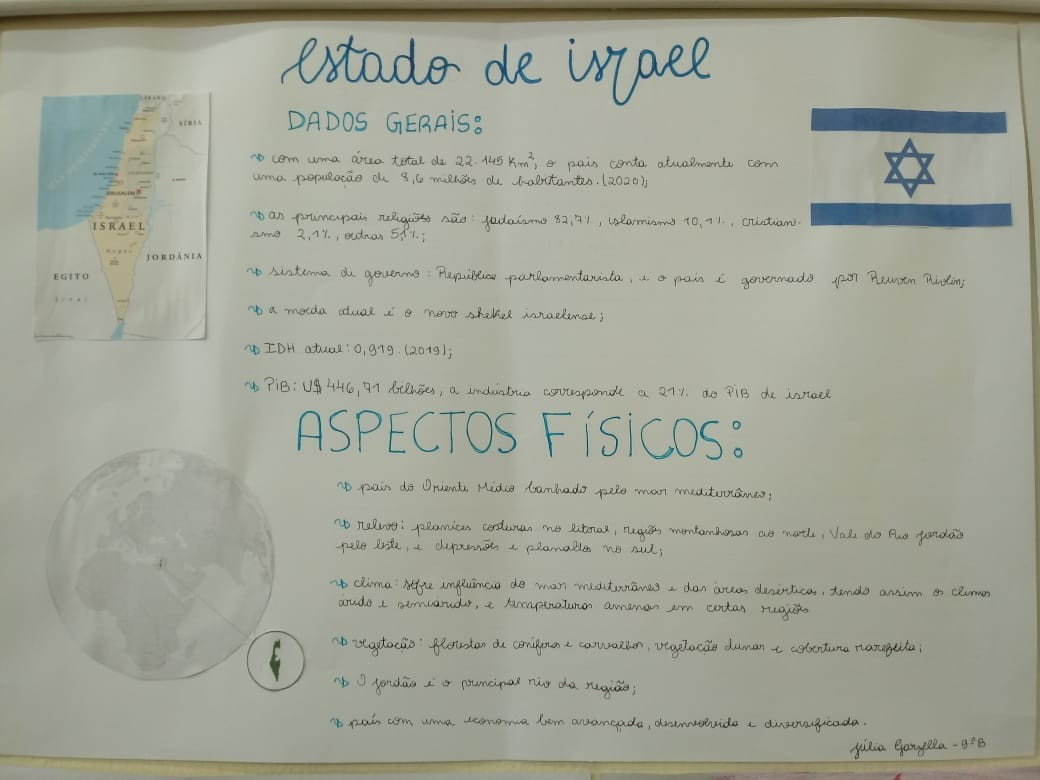 Estado de israel
DADOS GERAIS:
com uma área total de 22.145 Km², o país conta atualmente com
uma população de 8,6 milhões de habitantes. (2020);
as principais religiões são: judaísmo 82,7%, islamismo 10,1%, cristian-
smo 2,1%, outras 5,1%;
sistema de governo: República parlamentarista, e o país é governado por Reuven Rivlin;
a moeda atual é o novo shekel israelense;
IDH atual: 0,919. (2019);
PiB: U$ 446,71 bilhões, a indústria corresponde a 21% do PiB de israel
LÍBANO
SÍRIA
JERUSALÉM
ISRAEL
JORDÂNIA
EGITO
ASPECTOS FÍSICOS:
país do Oriente Médio banhado pelo mar mediterrâneo;
relevo: planícies costeiras no litoral, regiões montanhosas ao norte, Vale do Rio Jordão
pelo leste, e depressões e planaltos no sul;
clima: sofre influência do mar mediterrâneo e das áreas desérticas, tendo assim os climas
árido e semiárido, e temperaturas amenas em certas regiões
vegetação: florestas de coníferas e carvalhos, vegetação dunar e cobertura rarefeita;
O jordão é o principal rio da região;
país com uma economia bem avançada, desenvolvida e diversificada.
Júlia Garzella - 9ºB